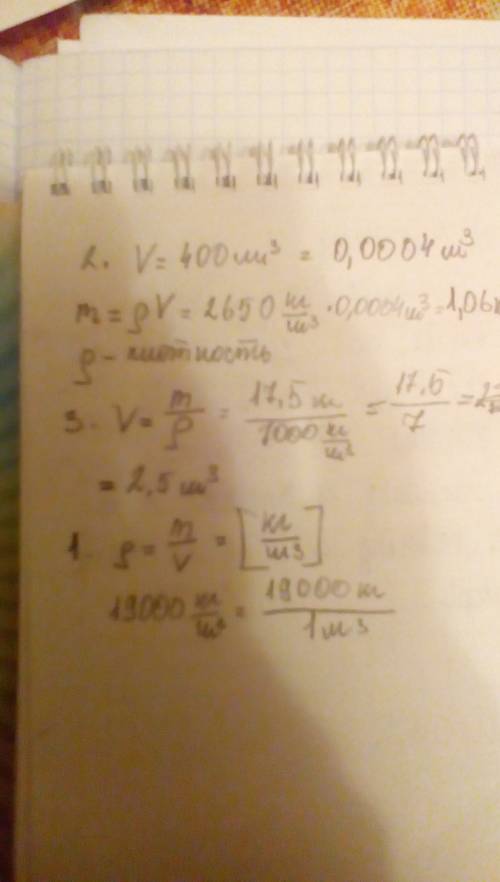 2. V = 400 см³ = 0,0004 м³
m = ρV = 2650 кг/м³ · 0,0004 м³ = 1,06
ρ - плотность
3. V = m/ρ = 17,5 кг / 7000 кг/м³ = 17,5/7 =
= 2,5 м³
1 ρ = m/V = [кг/м3]
19000 кг/м³ = 19000 кг / 1 м3